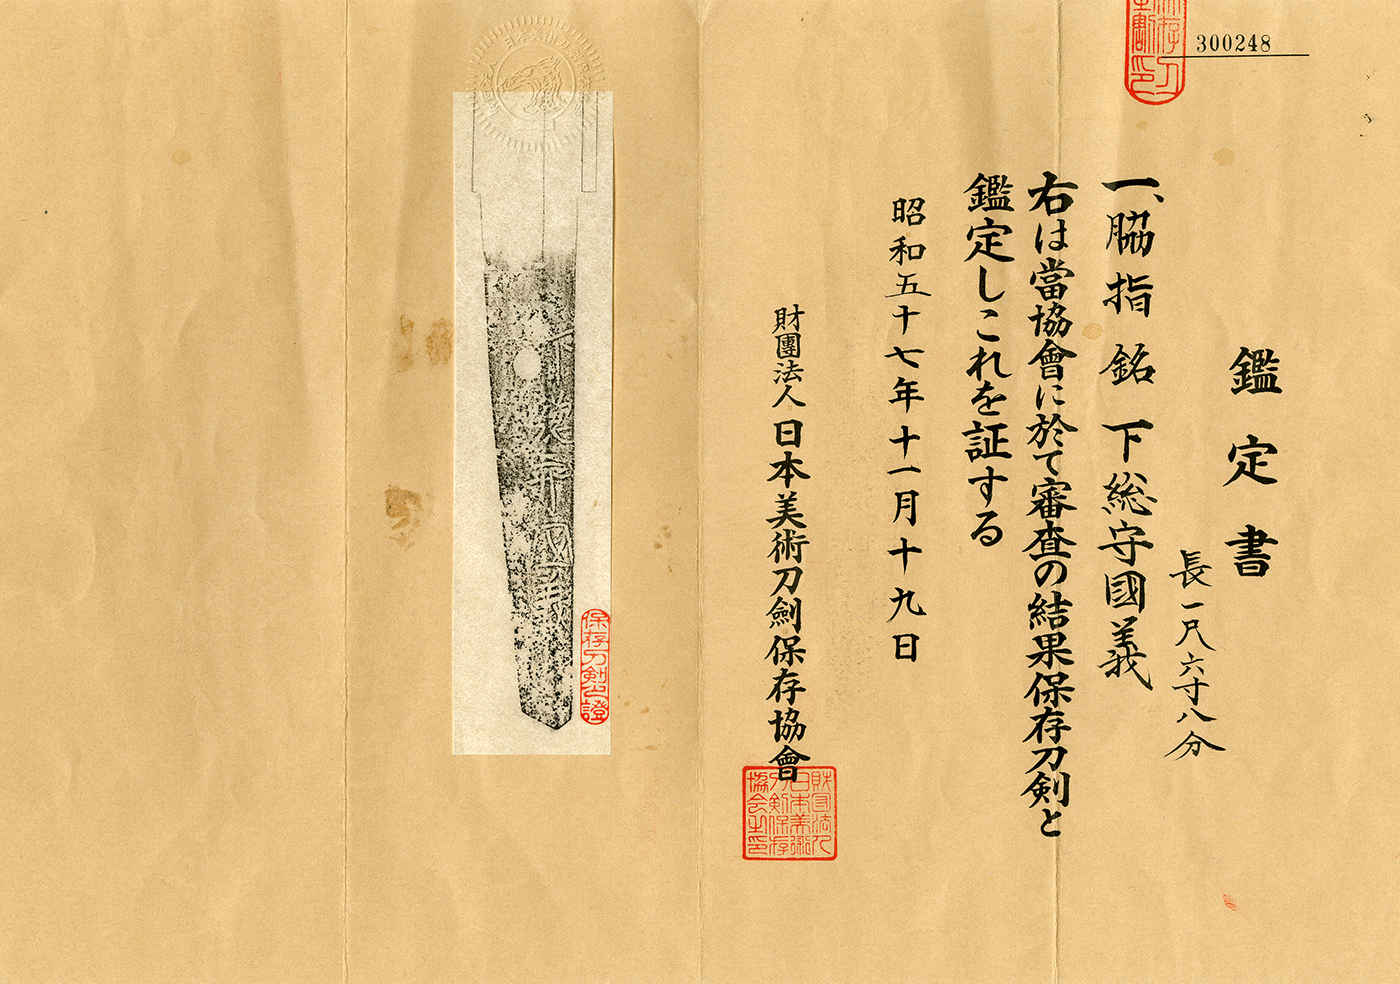 300248
鑑定書
一、脇指 銘 下総守國義
長一尺六寸八分
右は當協會に於て審査の結果保存刀剣と
鑑定しこれを証する
昭和五十七年十一月十九日
財團法人日本美術刀劍保存協會
財団法人
日本美術
刀剣保存
協会之印
保存刀剣之證